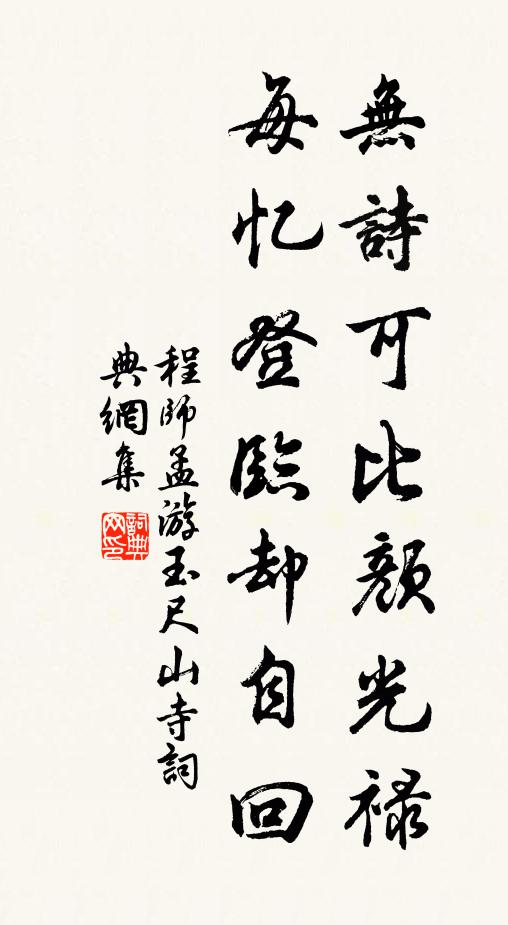 無詩可比顏光祿
每忆登臨却自回
程師孟游玉尺山寺詞
典網集
詞典
网印